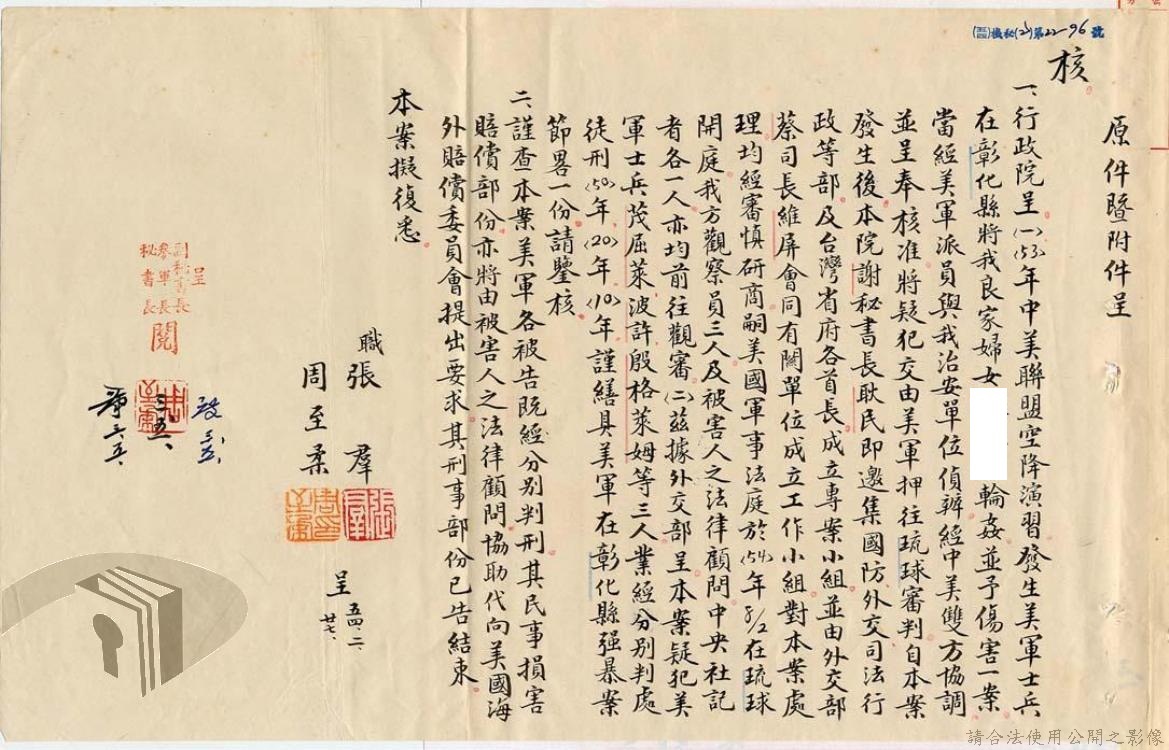 (五四)機秘(乙)第22-96號
原件暨附件呈
核
一、行政院呈(一)(53)年中美聯盟空降演習發生美軍士兵
在彰化縣將我良家婦女輪姦並予傷害一案
當經美軍派員與我治安單位偵辦經中美雙方協調
並呈奉核准將疑犯交由美軍押往琉球審判自本案
發生後本院謝秘書長耿民即邀集國防外交司法行
政等部及台灣省府各首長成立專案小組並由外交部
蔡司長維屏會同有關單位成立工作小組對本案處
理均經審慎研商嗣美國軍事法庭於(54)年8/2在琉球
開庭我方觀察員三人及被害人之法律顧問中央社記
者各一人亦均前往觀審(二)茲據外交部呈本案疑犯美
軍士兵茂屈萊波許殷格萊姆等三人業經分別判處
徒刑(50)年(20)年(10)年謹繕具美軍在彰化縣强暴案
節畧一份請鑒核
二、謹查本案美軍各被告既經分別判刑其民事損害
賠償部份亦將由被害人之法律顧問協助代向美國海
外賠償委員會提出要求其刑事部份已告結束
本案擬復悉
職張羣
周至柔
呈
五四、二、廿七、
呈
副秘書長
參軍長
秘書長
閱
請合法使用公開之影像